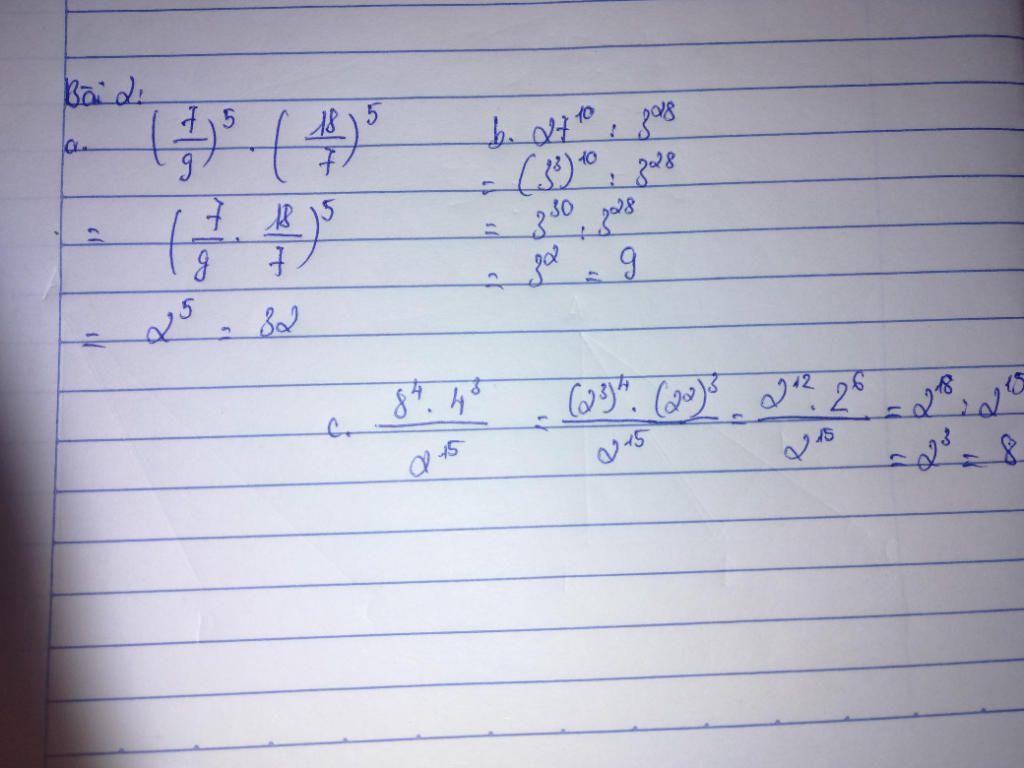 Bài 2:
a. (7/9)^5 . (18/7)^5
= (7/9 . 18/7)^5
= 2^5 = 32
b. 27^10 : 3^28
= (3^3)^10 : 3^28
= 3^30 : 3^28
= 3^2 = 9
c. (8^4 . 4^3)/(2^15) = ((2^3)^4 . (2^2)^3)/(2^15) = (2^12 . 2^6)/(2^15) = 2^18 : 2^15
= 2^3 = 8